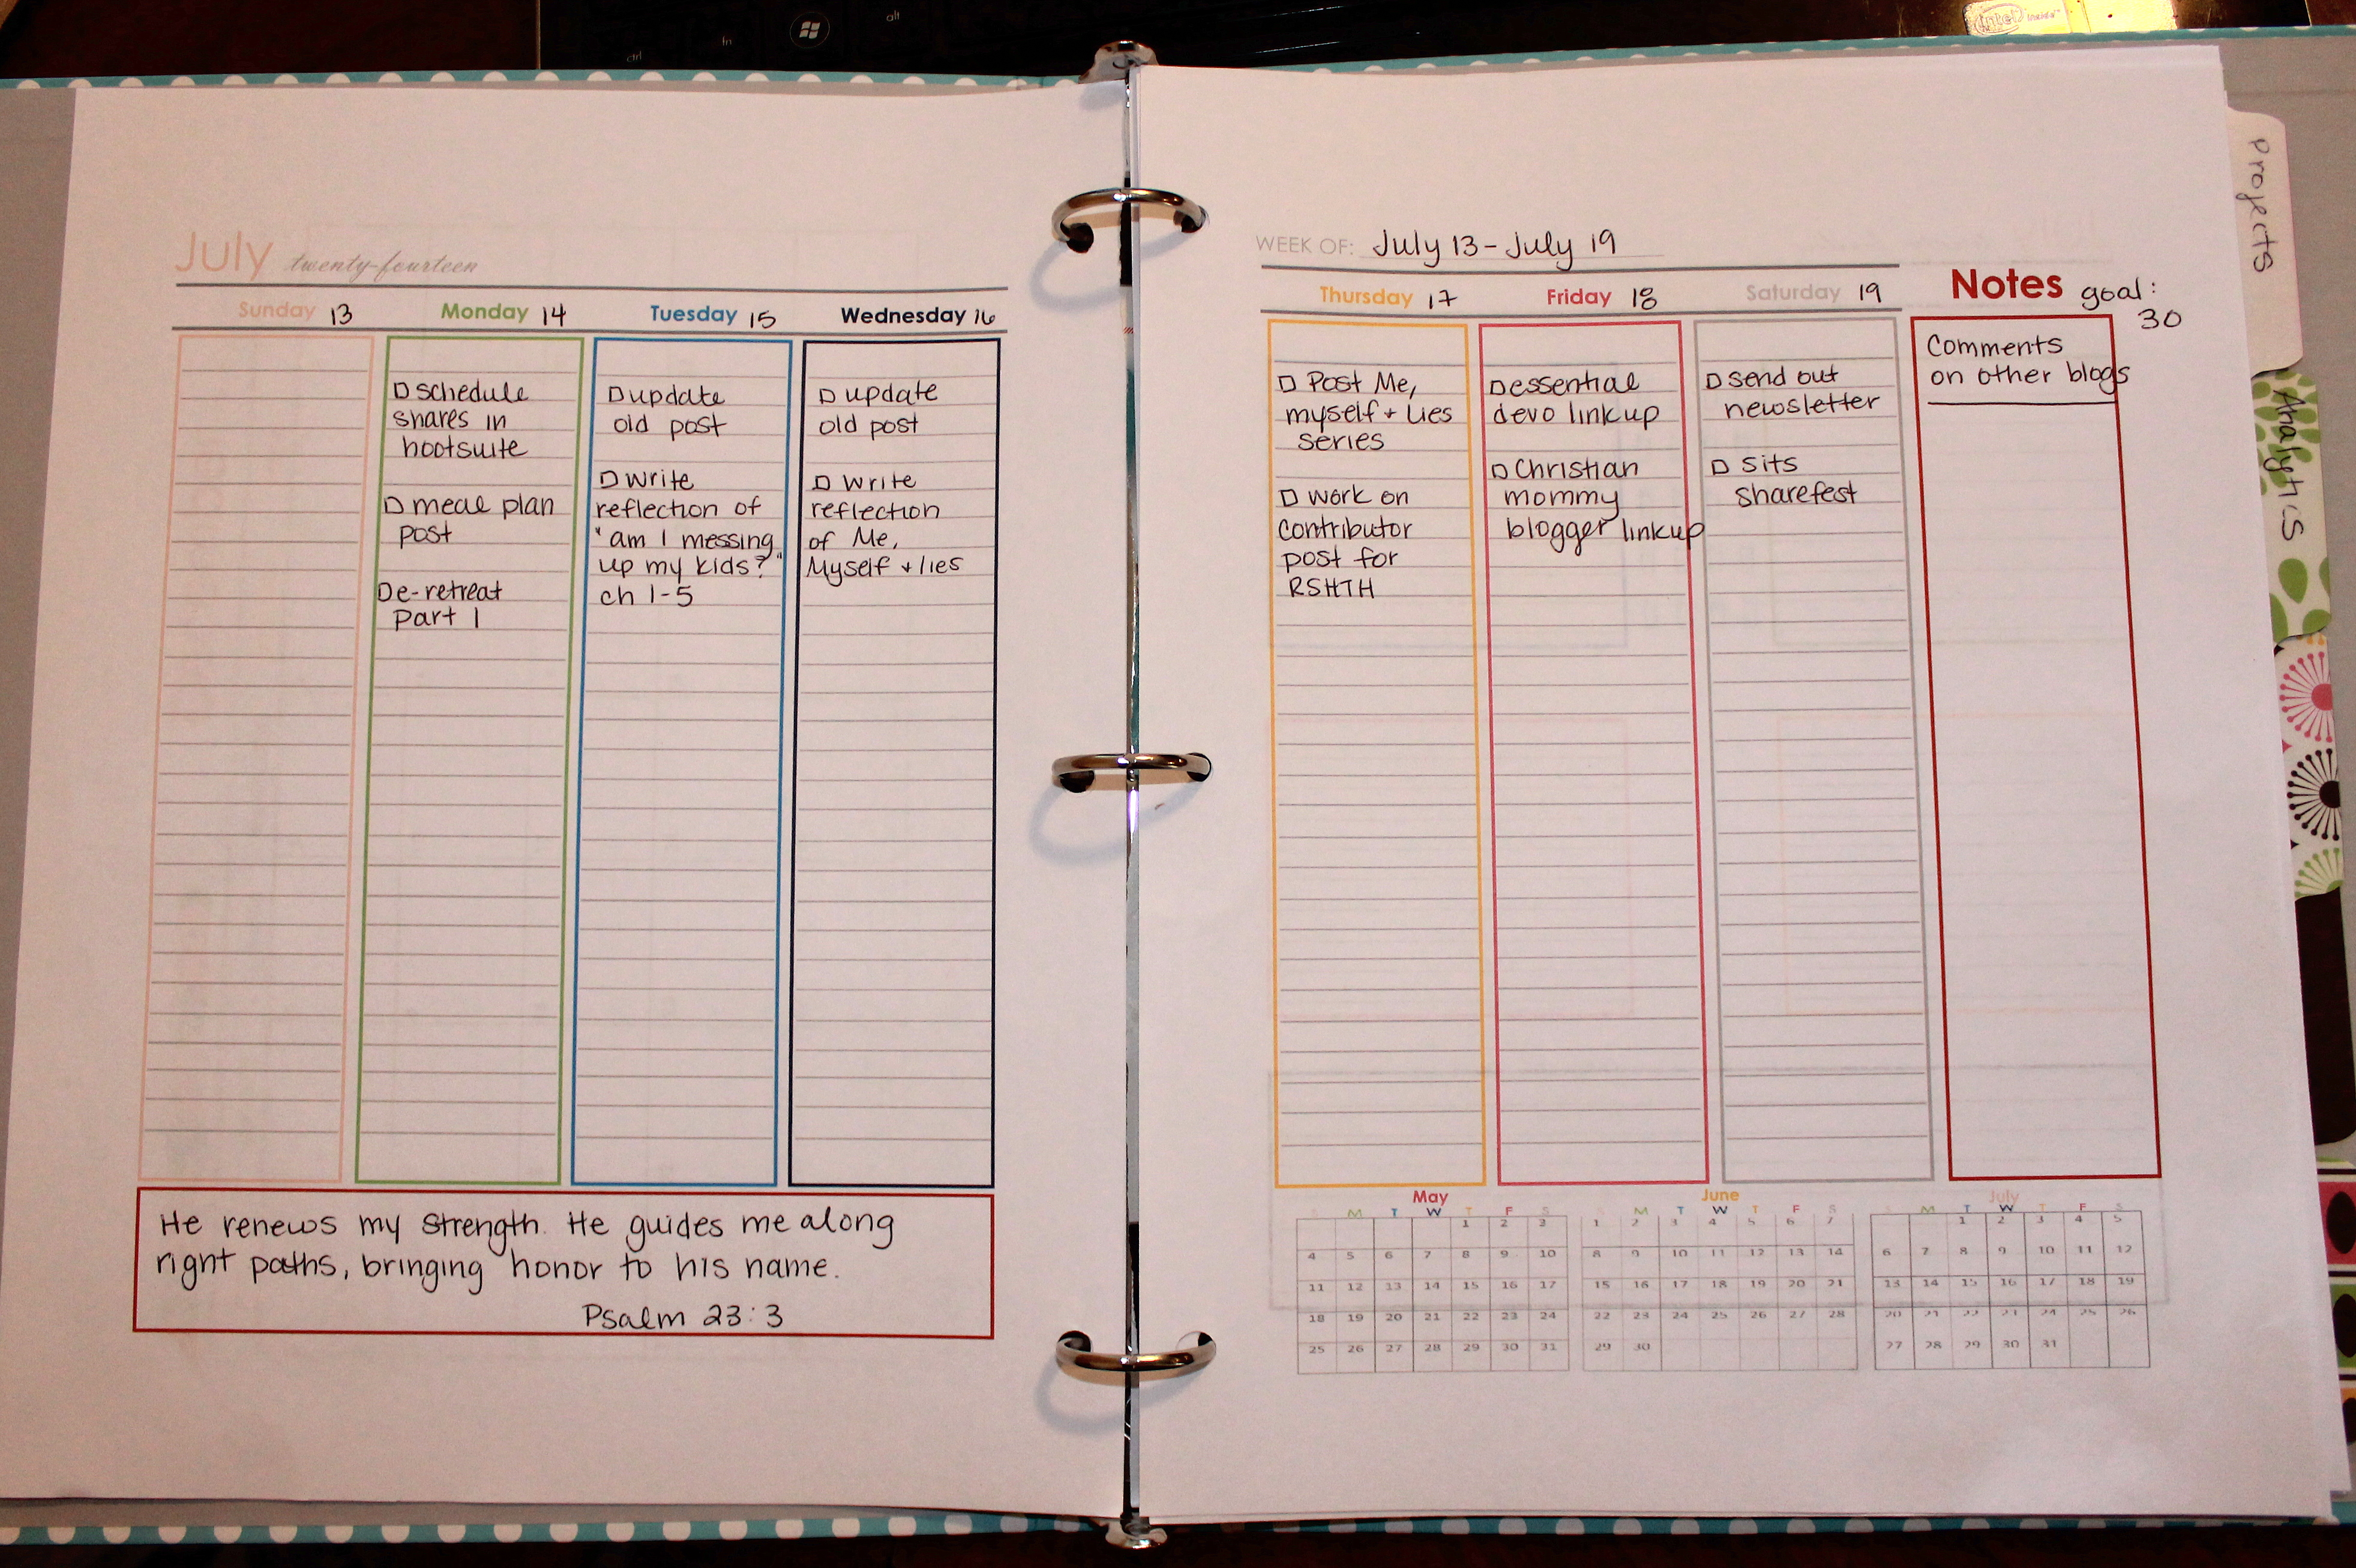 fn
ctrl
alt
intel inside™
July twenty-fourteen
Sunday 13
Monday 14
Tuesday 15
Wednesday 16
schedule
shares in
hootsuite
meal plan
post
e-retreat
Part 1
update
old post
write
reflection of
"am I messing
up my kids?"
ch 1-5
update
old post
write
reflection
of Me,
Myself + lies
He renews my strength. He guides me along
right paths, bringing honor to his name.
Psalm 23:3
WEEK OF: July 13 - July 19
Thursday 17
Friday 18
Saturday 19
Notes goal:
30
Post Me,
myself + Lies
series
work on
contributor
post for
RSHTH
essential
devo linkup
Christian
mommy
blogger linkup
send out
newsletter
sits
sharefest
Comments
on other blogs
May
S M T W T F S
1 2 3
4 5 6 7 8 9 10
11 12 13 14 15 16 17
18 19 20 21 22 23 24
25 26 27 28 29 30 31
June
S M T W T F S
1 2 3 4 5 6 7
8 9 10 11 12 13 14
15 16 17 18 19 20 21
22 23 24 25 26 27 28
29 30
July
S M T W T F S
1 2 3 4 5
6 7 8 9 10 11 12
13 14 15 16 17 18 19
20 21 22 23 24 25 26
27 28 29 30 31
Projects
Analytics